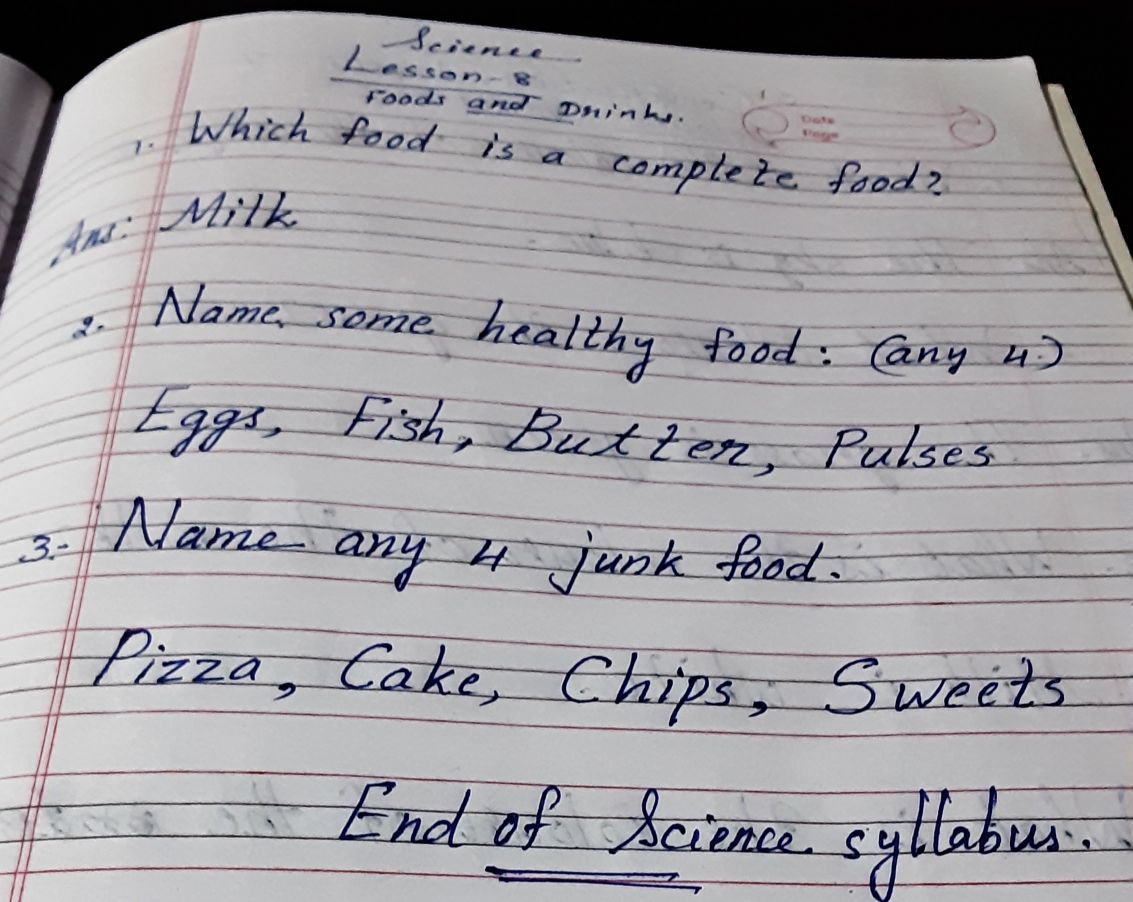 Science
Lesson-8
Foods and Drinks.
Date
Page
1. Which food is a complete food?
Ans: Milk
2. Name some healthy food: (any 4.)
Eggs, Fish, Butter, Pulses
3.- Name any 4 junk food.
Pizza, Cake, Chips, Sweets
End of Science syllabus.